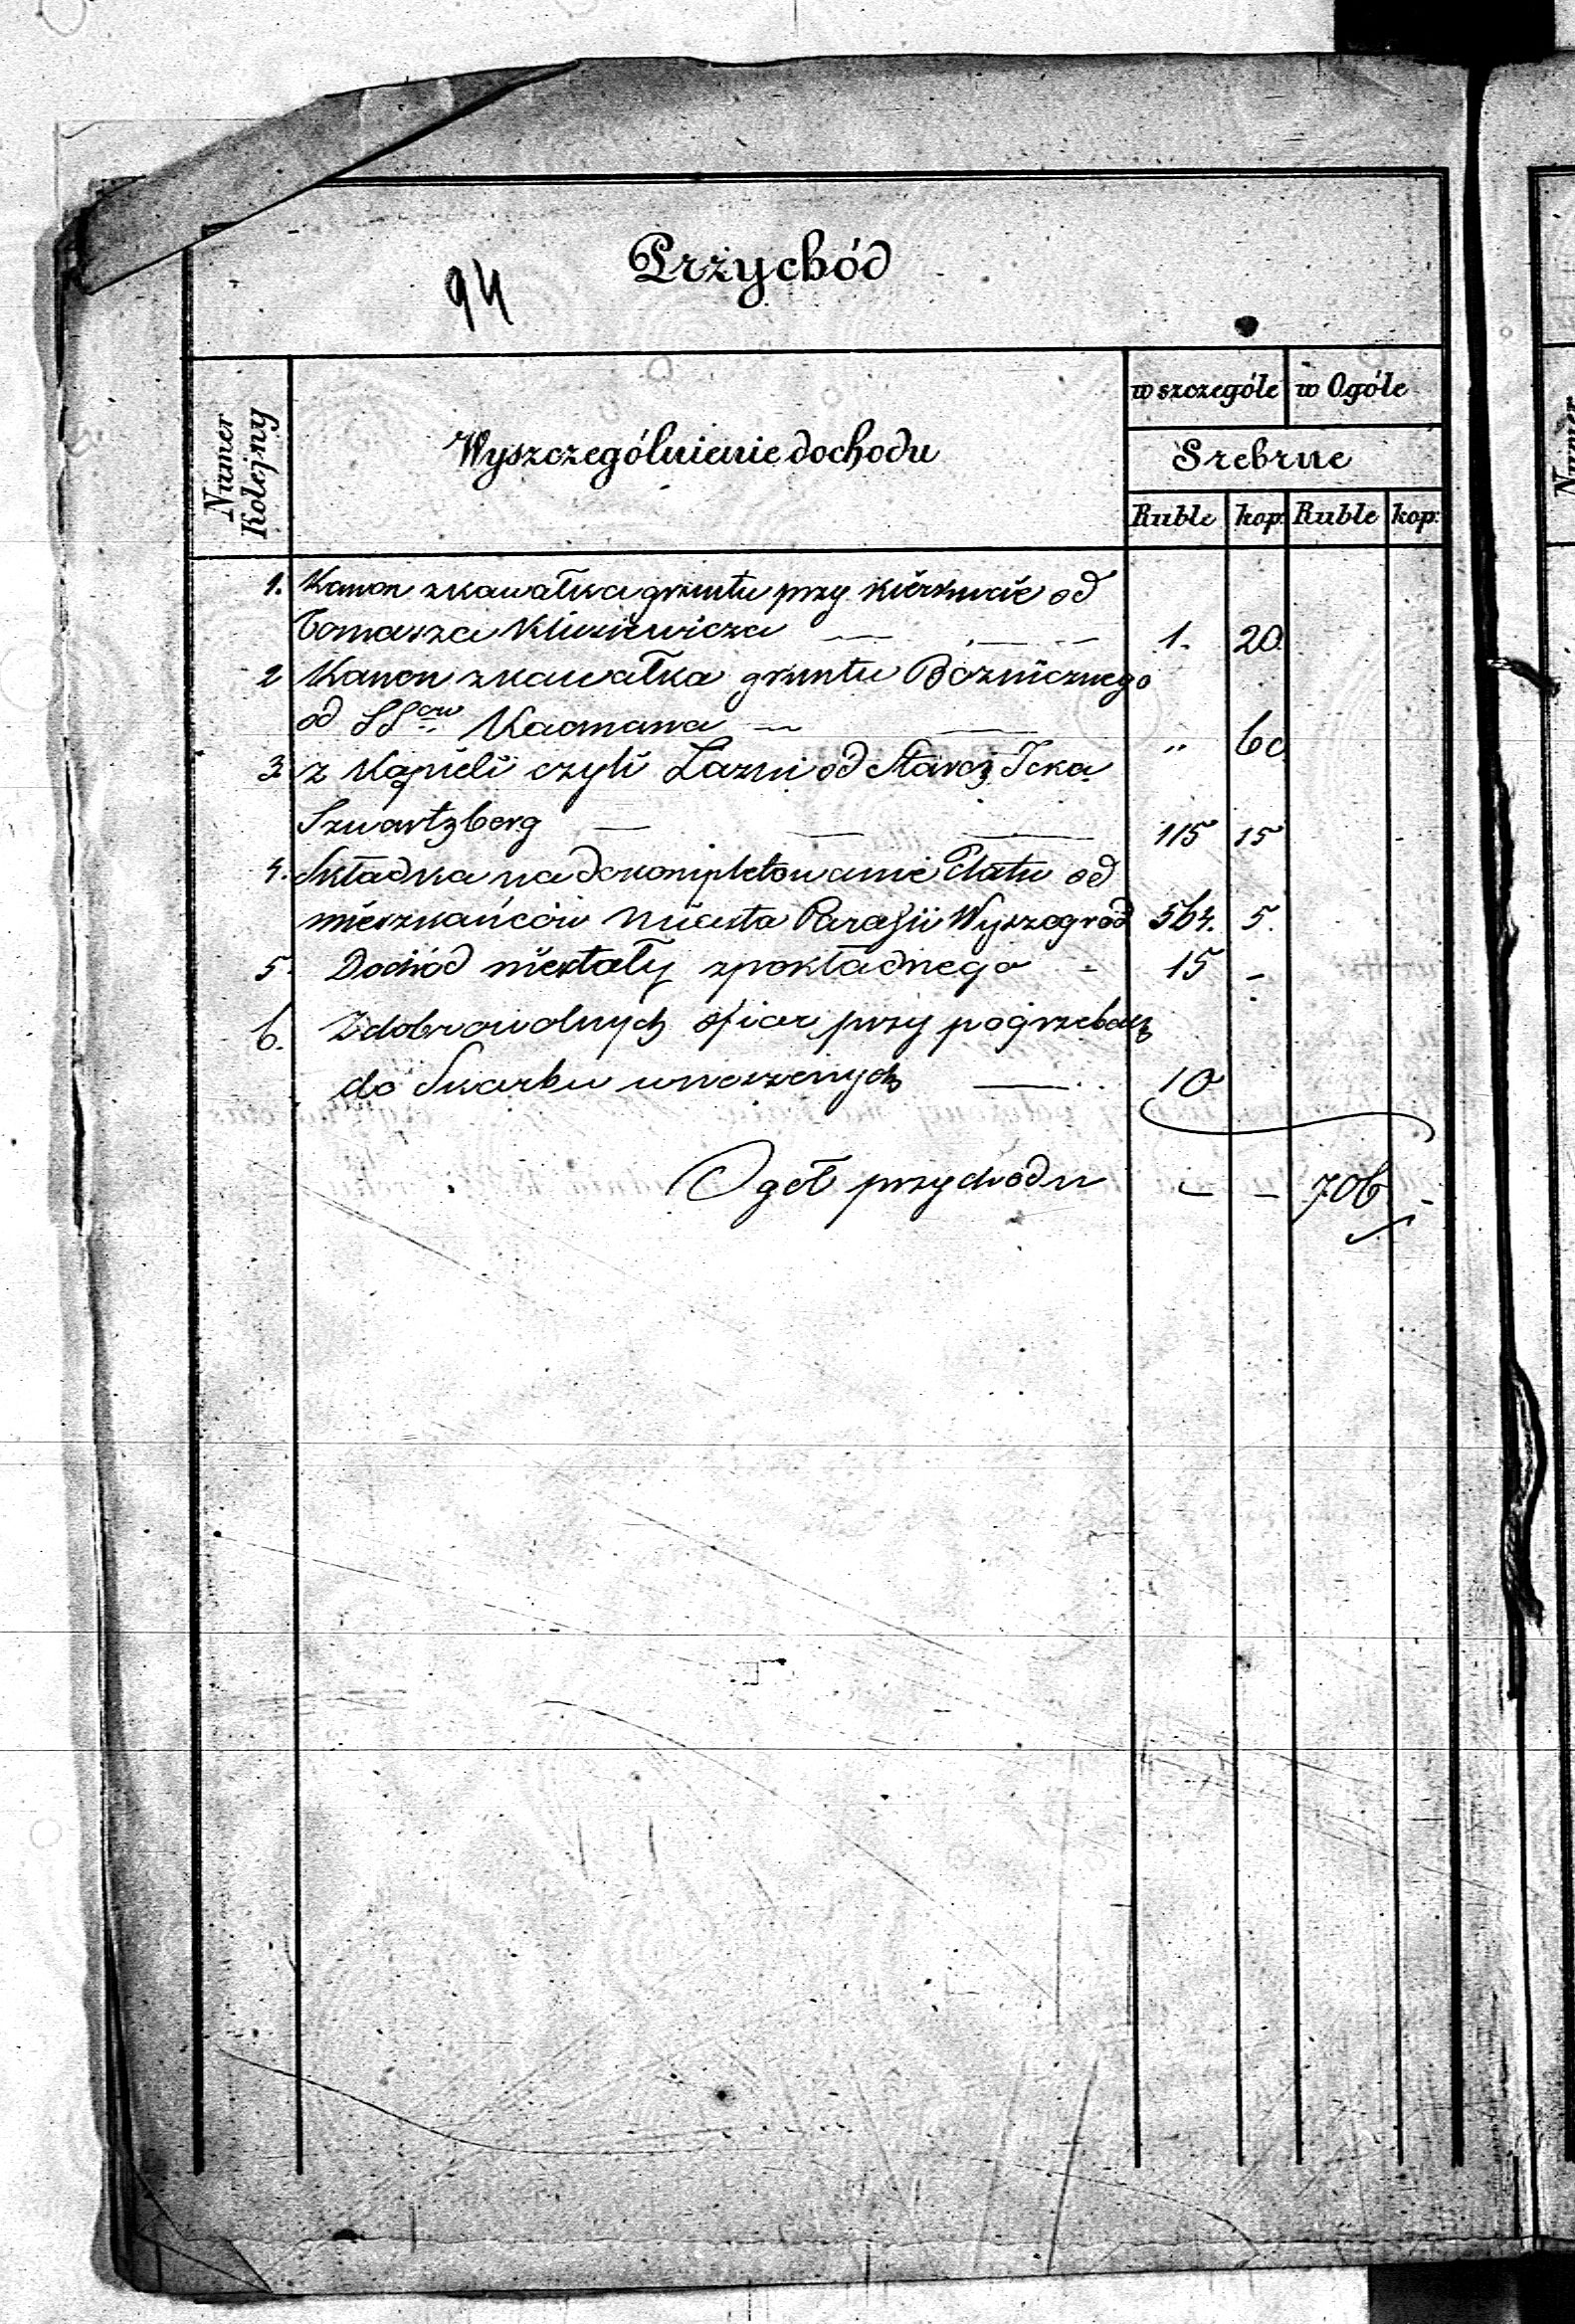 Przychód
94
Numer Kolejny
Wyszczególnienie dochodu
w szczególe
w Ogóle
Srebrne
Ruble kop: Ruble kop:
1. Kanon z kawałka gruntu przy kierkucie od
Tomasza 1. 20
2 Kanon z kawałka gruntu Bożnicznego
od SSów Kacmana " 60
3. z Kąpieli czyli Łazni od Staroz. Icka
Szwartzberg 115 15
4. Składka na dokompletowanie Etatu od
mieszkańców Miasta Parafii Wyszogród 564. 5.
5. Dochód niestały z pokładnego - 15 -
6. Z dobrowolnych ofiar przy pogrzebach
do Skarbu wnoszonych 10
Ogół przychodu - - 706 -